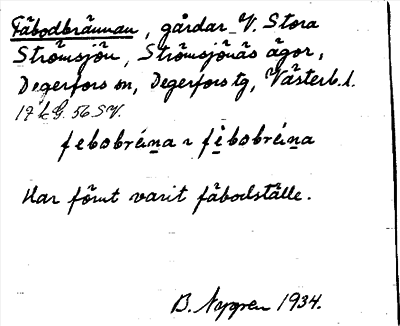 Fäbodbrännan, gårdar V. Stora
Strömsjön, Strömsjönäs ägor,
Degerfors sn, Degerfors tg, Västerb. l.
17 56 SV.
febobréna ~ fèbobréna
Har förut varit fäbodställe.
B. Nygren 1934.